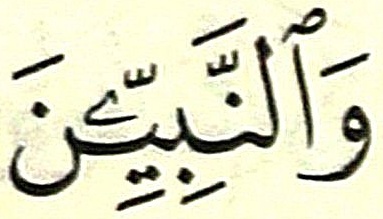 وَٱلنَّبِيِّۦنَ